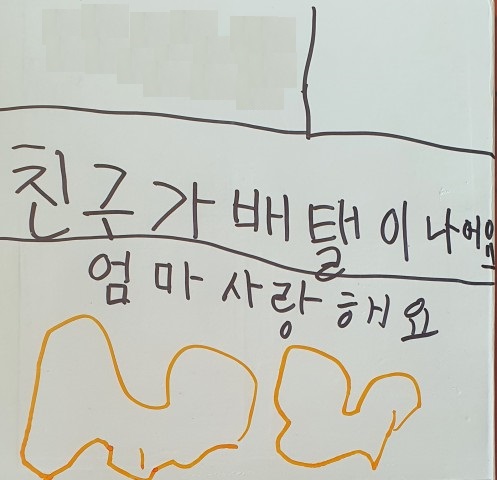 친구가배탤이나에
엄마사랑해요